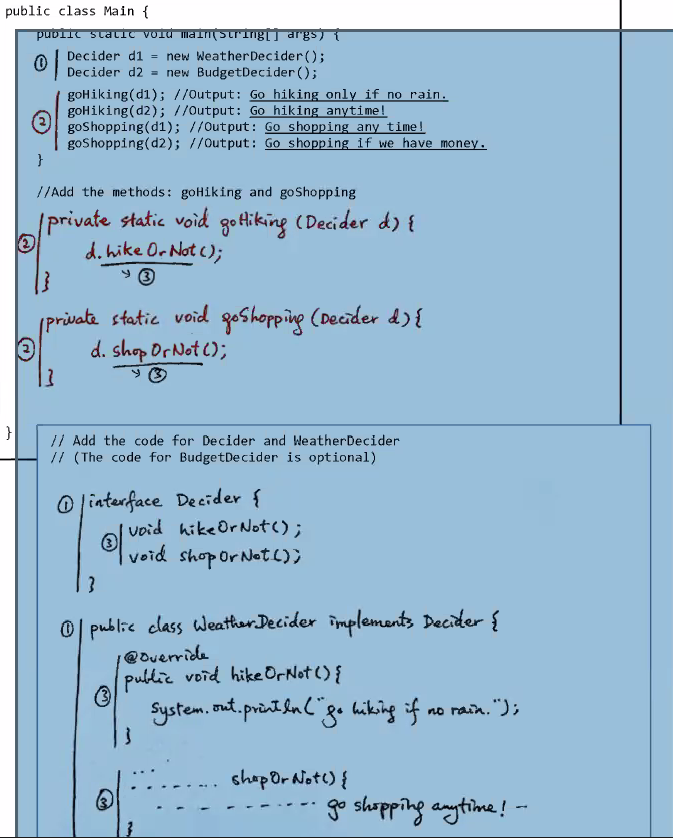 public class Main {
public static void main(String[] args) {
① Decider d1 = new WeatherDecider();
Decider d2 = new BudgetDecider();
② goHiking(d1); //Output: Go hiking only if no rain.
goHiking(d2); //Output: Go hiking anytime!
goShopping(d1); //Output: Go shopping any time!
goShopping(d2); //Output: Go shopping if we have money.
}
//Add the methods: goHiking and goShopping
② private static void goHiking (Decider d) {
d.hikeOrNot();
③
}
② private static void goShopping (Decider d){
d. shopOrNot();
③
}
}
// Add the code for Decider and WeatherDecider
// (The code for BudgetDecider is optional)
① interface Decider {
③ void hikeOrNot();
void shopOrNot();
}
① public class WeatherDecider implements Decider {
@Override
③ public void hikeOrNot(){
System.out.println("go hiking if no rain.");
}
...
③ ....... shopOrNot(){
- - - - - - - - - go shopping anytime! -
}